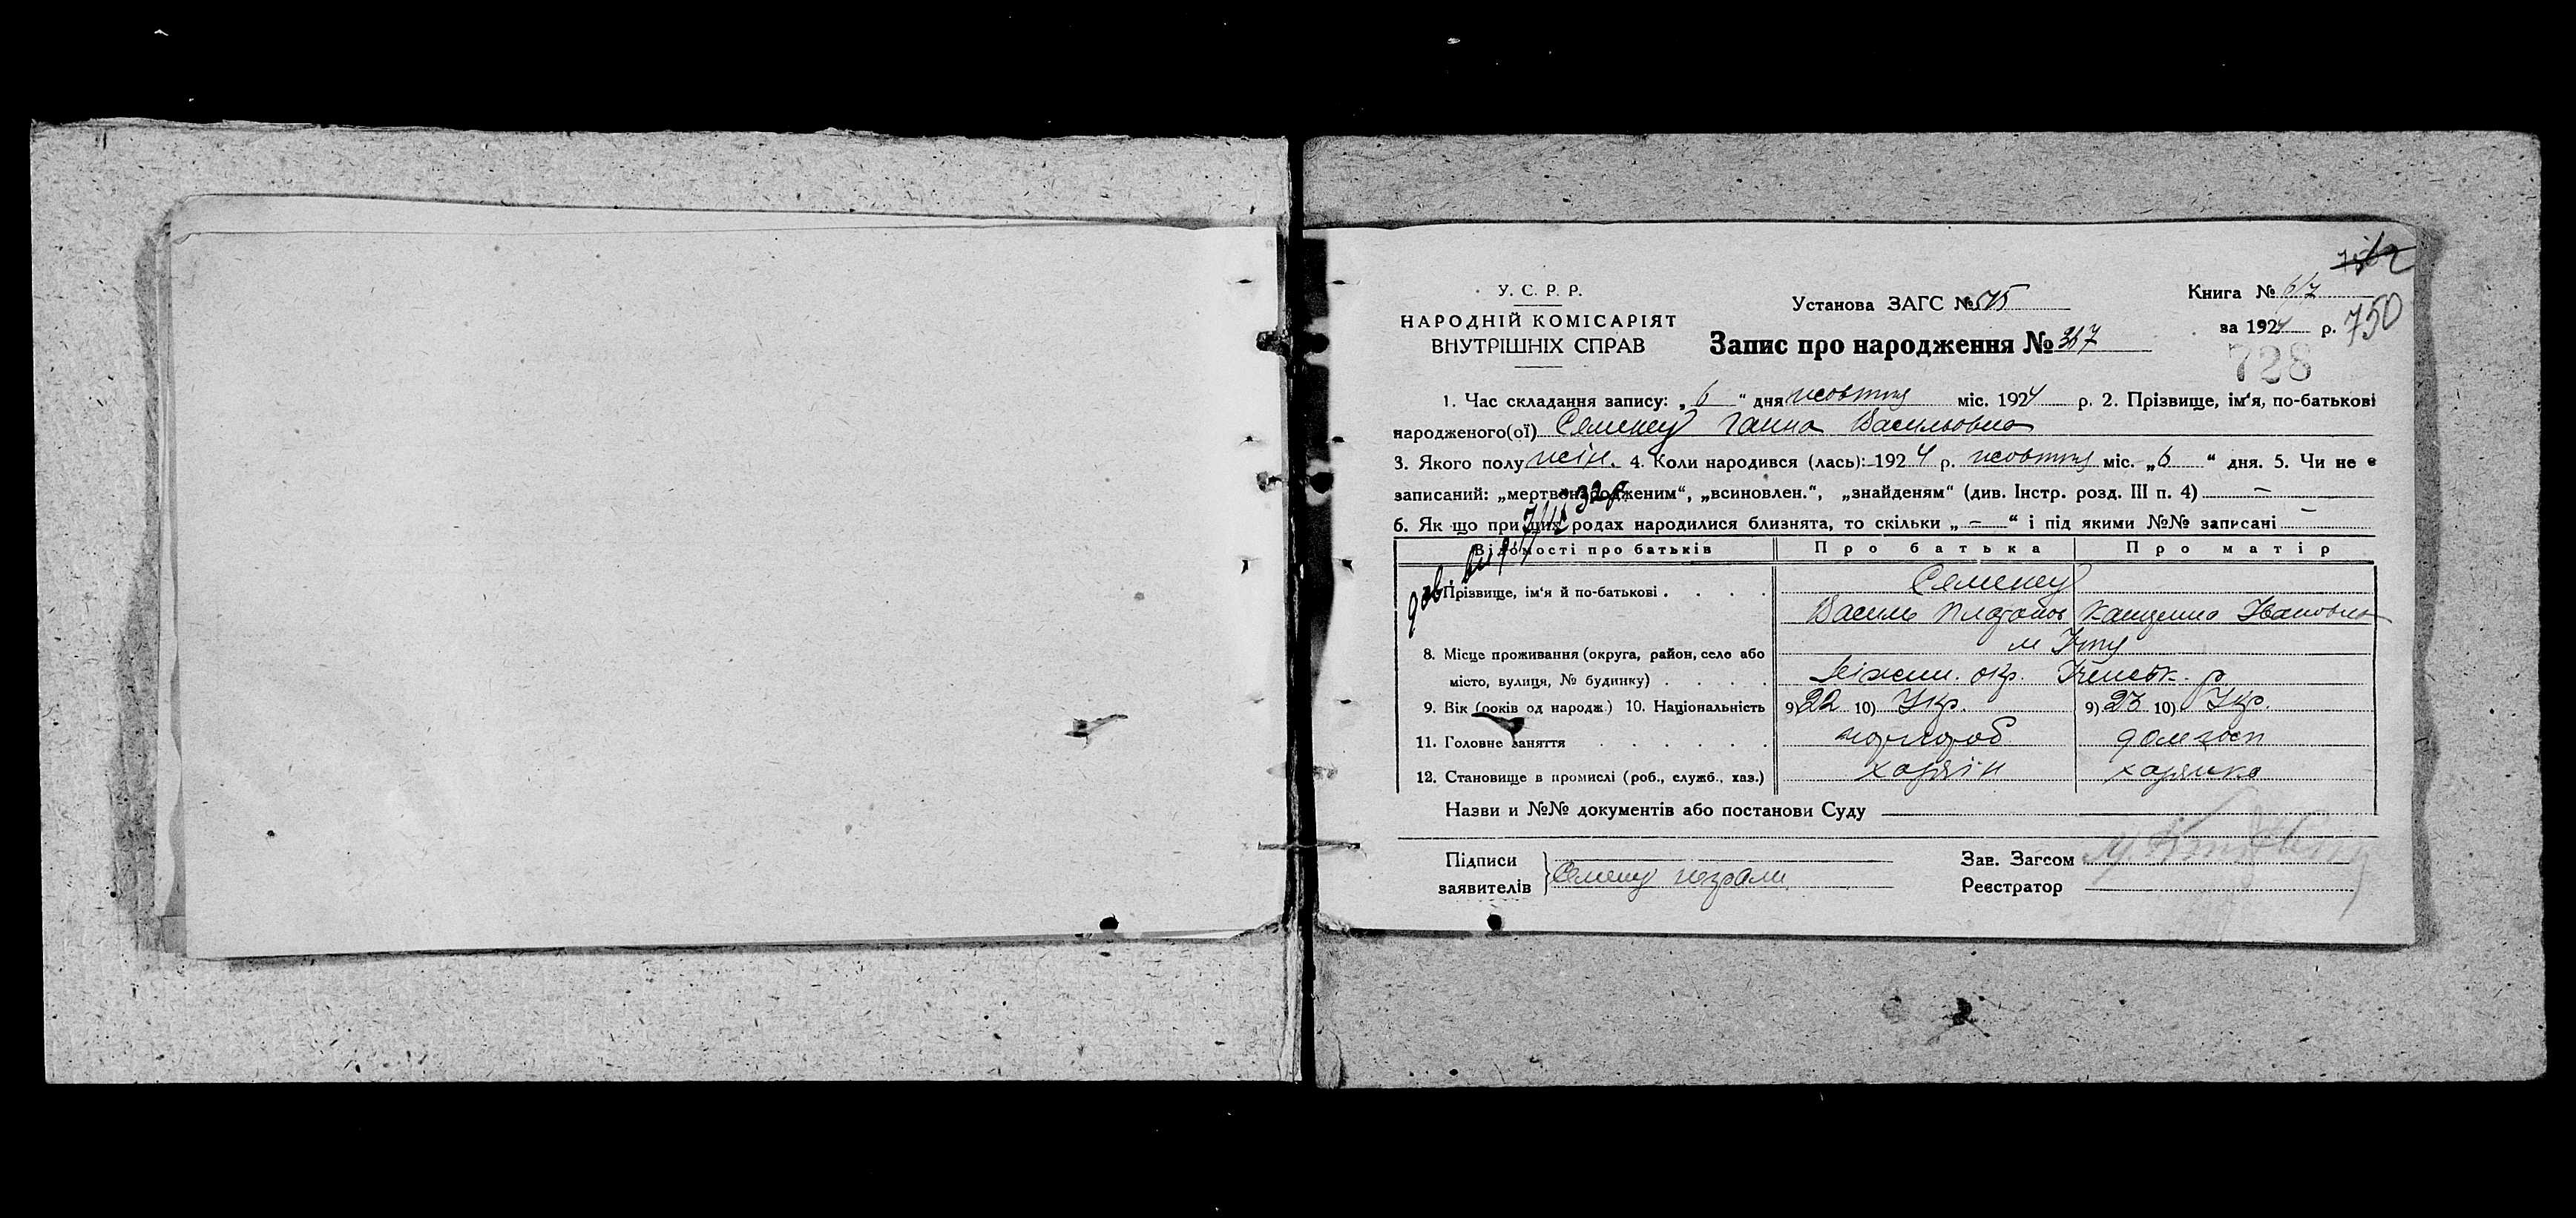 У. С. Р. Р.
НАРОДНІЙ КОМІСАРІЯТ
ВНУТРІШНІХ СПРАВ
Установа ЗАГС №
Запис про народження № 367
Книга № 67
за 1924 р.
750
728
1. Час складання запису: „ 6 “ дня жовтня міс. 1924 р. 2. Прізвище, ім‘я, по-батькові
народженого(ої) Ганна Васильовна
3. Якого полу жін. 4. Коли народився (лась): 1924 р. жовтня міс. „ 6 “ дня. 5. Чи не є
записаний: „мертвонародженим“, „всиновлен.“, „знайденям“ (див. Інстр. розд. III п. 4) —
6. Як що при цих родах народилися близнята, то скільки „ — “ і під якими №№ записані —
Відомості про батьків Про батька Про матір
Прізвище, ім‘я й по-батькові
Василь Платонов Івановна
8. Місце проживання (округа, район, село або
м
місто, вулиця, № будинку) Ніжин. окр.
9. Вік (років од народж.) 10. Національність 9) 22 10) Укр. 9) 23 10) Укр.
11. Головне заняття домгосп
12. Становище в промислі (роб., служб., хаз.) хазяїн хазяйка
Назви и №№ документів або постанови Суду
Підписи
заявителів
Зав. Загсом
Реєстратор